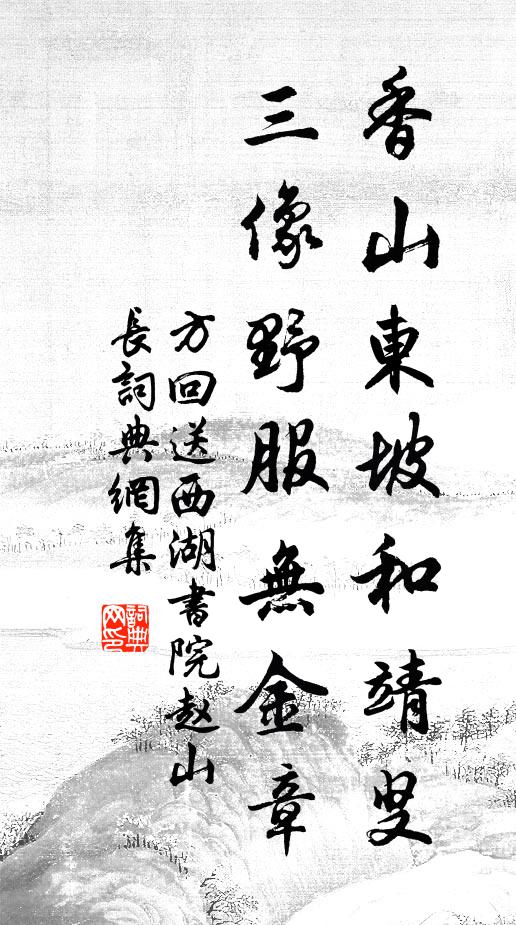 香山東坡和靖叟
三像野服無金章
方回送西湖書院赵山
長詞典網集
詞典网印